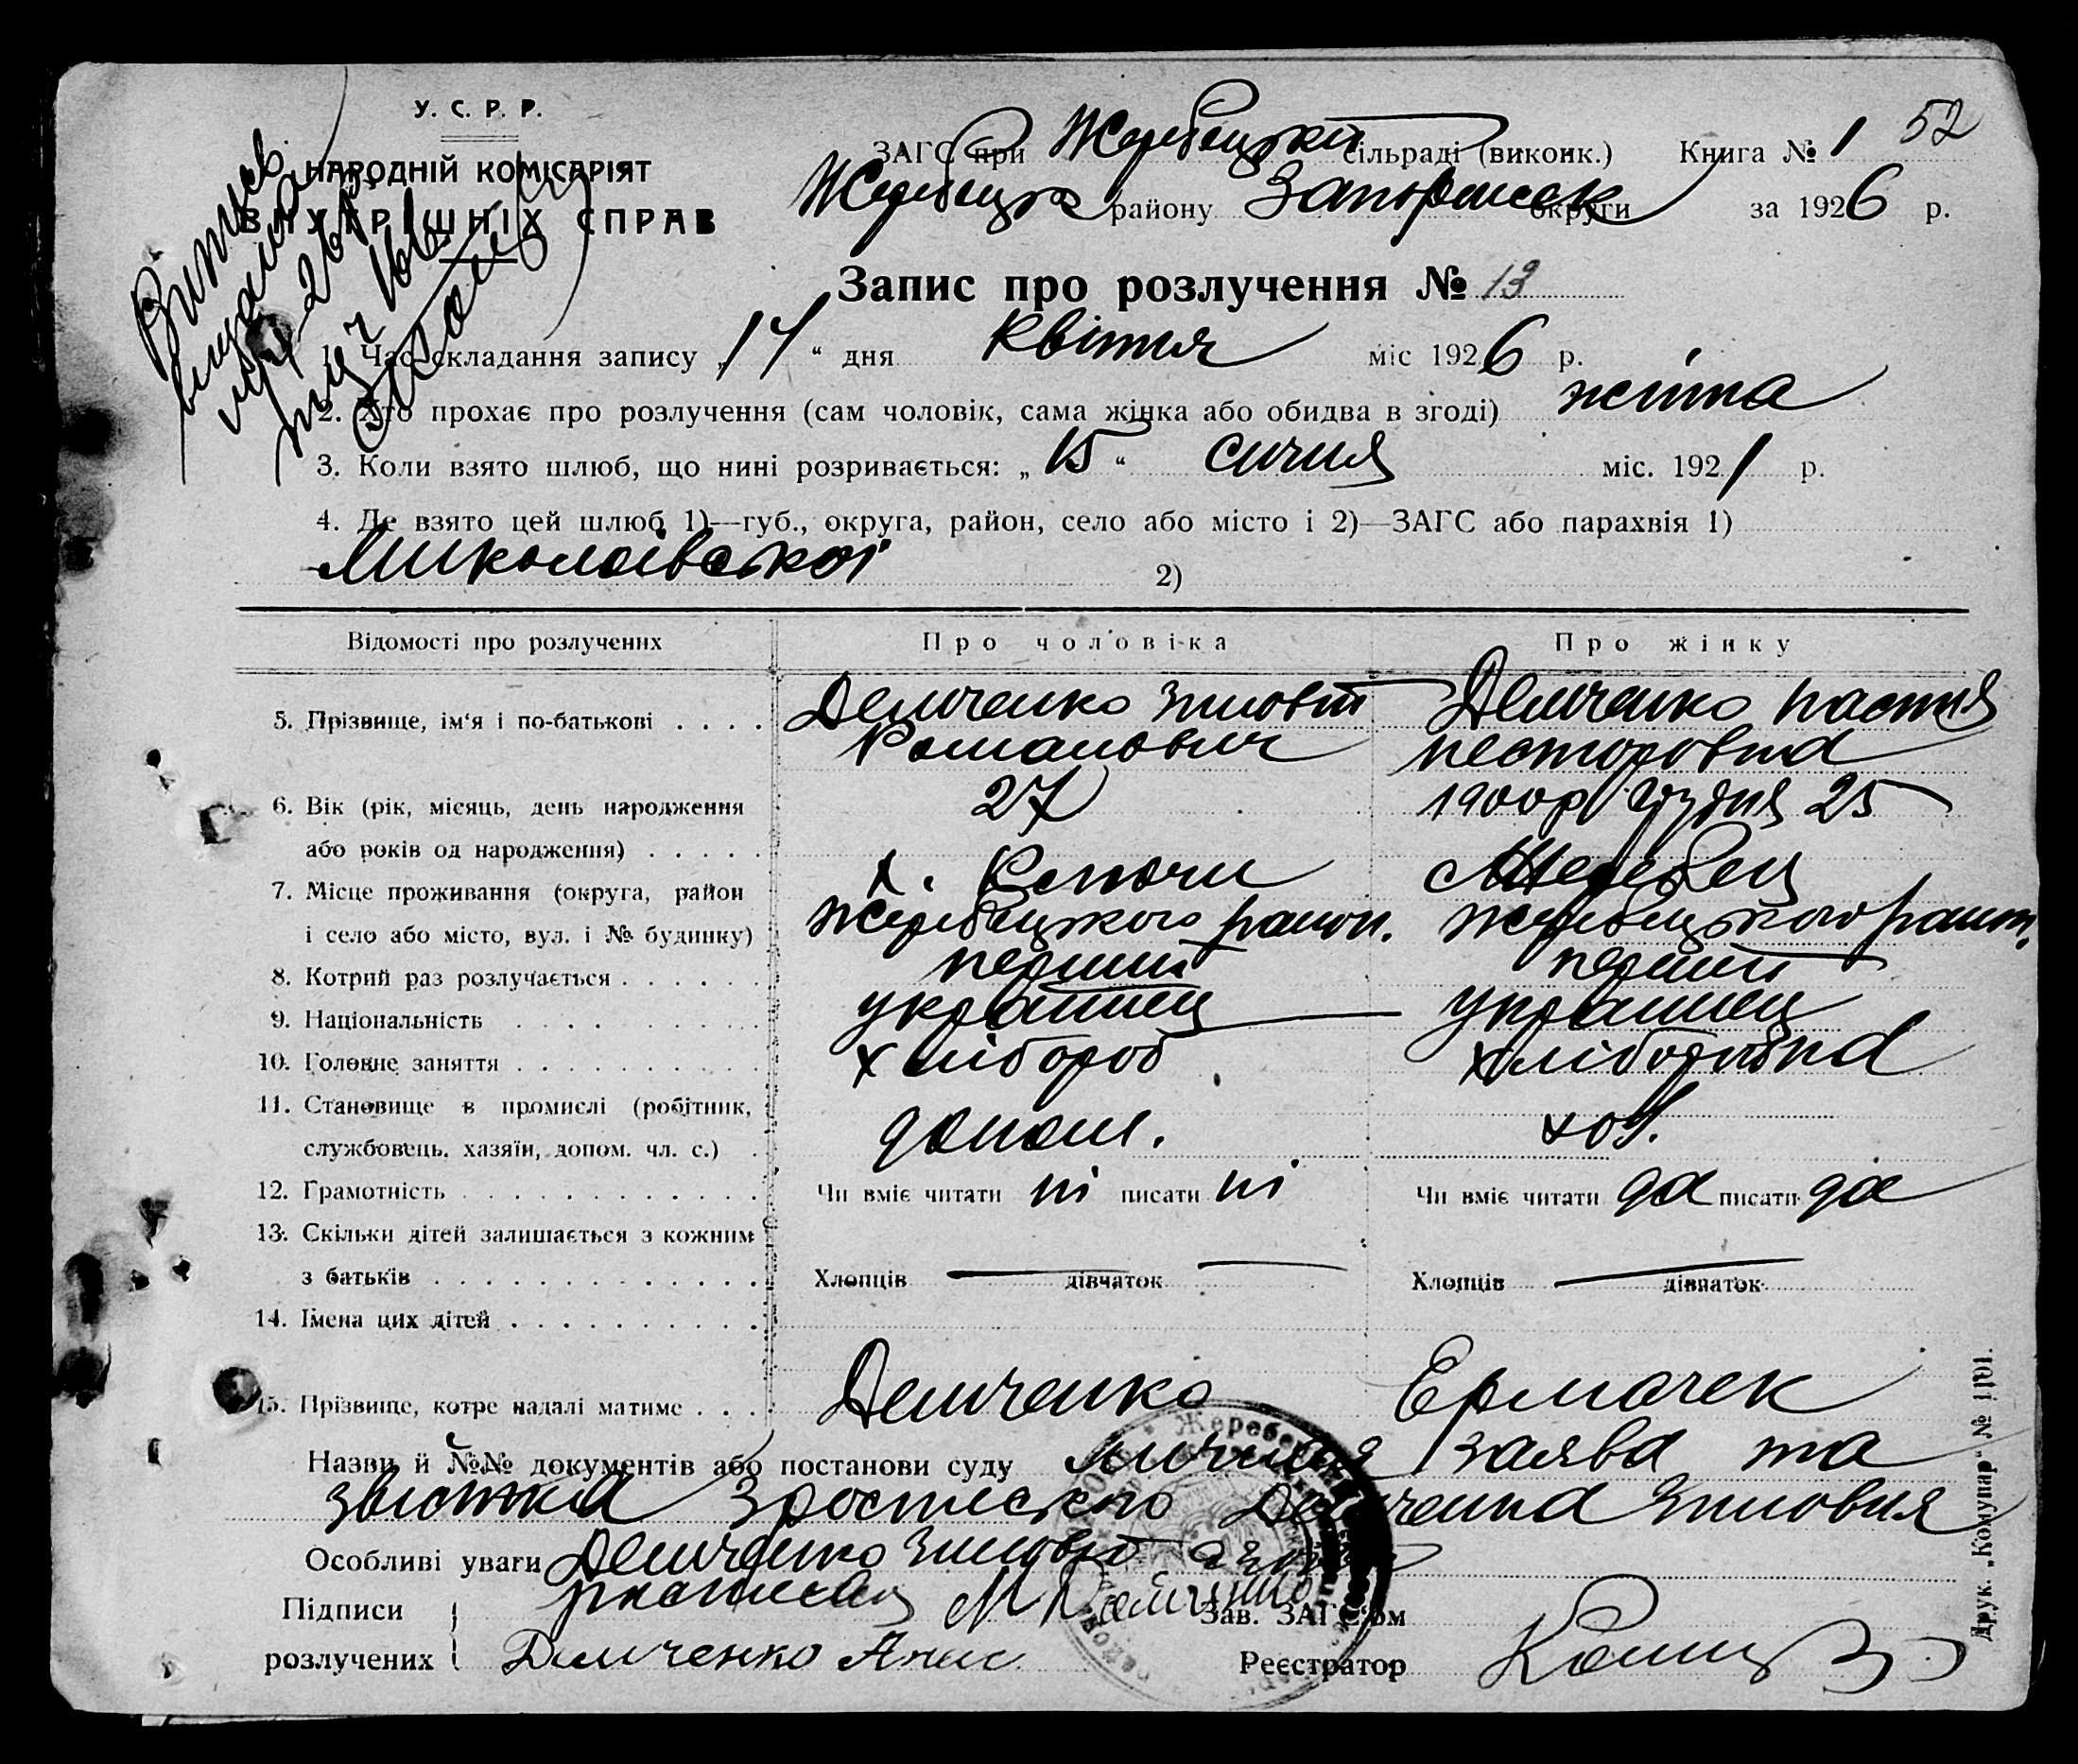 У. С. Р. Р.
НАРОДНІЙ КОМІСАРІЯТ
ВНУТРІШНІХ СПРАВ
52
ЗАГС при Жеребецькій сільраді (виконк.) Книга № 1
Жеребецьк району Запоріжск округи за 1926 р.
Запис про розлучення № 13
1. Час складання запису „14“ дня Квітня міс 1926 р.
2. Хто прохає про розлучення (сам чоловік, сама жінка або обидва в згоді) жінка
3. Коли взято шлюб, що нині розривається: „15“ січня міс. 1921 р.
4. Де взято цей шлюб 1)—губ., округа, район, село або місто і 2)—ЗАГС або парахвія 1)
Миколаївській 2)
Відомості про розлучених Про чоловіка Про жінку
5. Прізвище, ім'я і по-батькові . . . . Демченко Зиновій Демченко Настя
Романович Несторовна
6. Вік (рік, місяць, день народження 27 1900р Грудня 25
або років од народження) . . . . .
7. Місце проживання (округа, район х. с Жеребец
і село або місто, вул. і № будинку) Жеребецького район. Жеребецького район.
8. Котрий раз розлучається . . . . . . перший перший
9. Національність . . . . . . . українец українец
10. Головне заняття . . . . . . . . . . хлібороб хліборобка
11. Становище в промислі (робітник,
службовець, хазяїн, допом. чл. с.) . допом. хоз.
12. Грамотність . . . . . . . . . . . . Чи вміє читати ні писати ні Чи вміє читати да писати да
13. Скільки дітей залишається з кожним
з батьків . . . . . . . . . . . . . Хлопців — дівчаток — Хлопців — дівчаток
14. Імена цих дітей . . . . . . . . . .
15. Прізвище, котре надалі матиме . . . . Демченко Ермачек
Назви й №№ документів або постанови суду личная заява та
звистка Зросписько Демченка Зиновия
Особливі уваги Демченко Зиновій
Підписи М Демченко Зав. ЗАГС'ом
розлучених Демченко Анас Реєстратор
Друк. „Комунар“ № 1101.